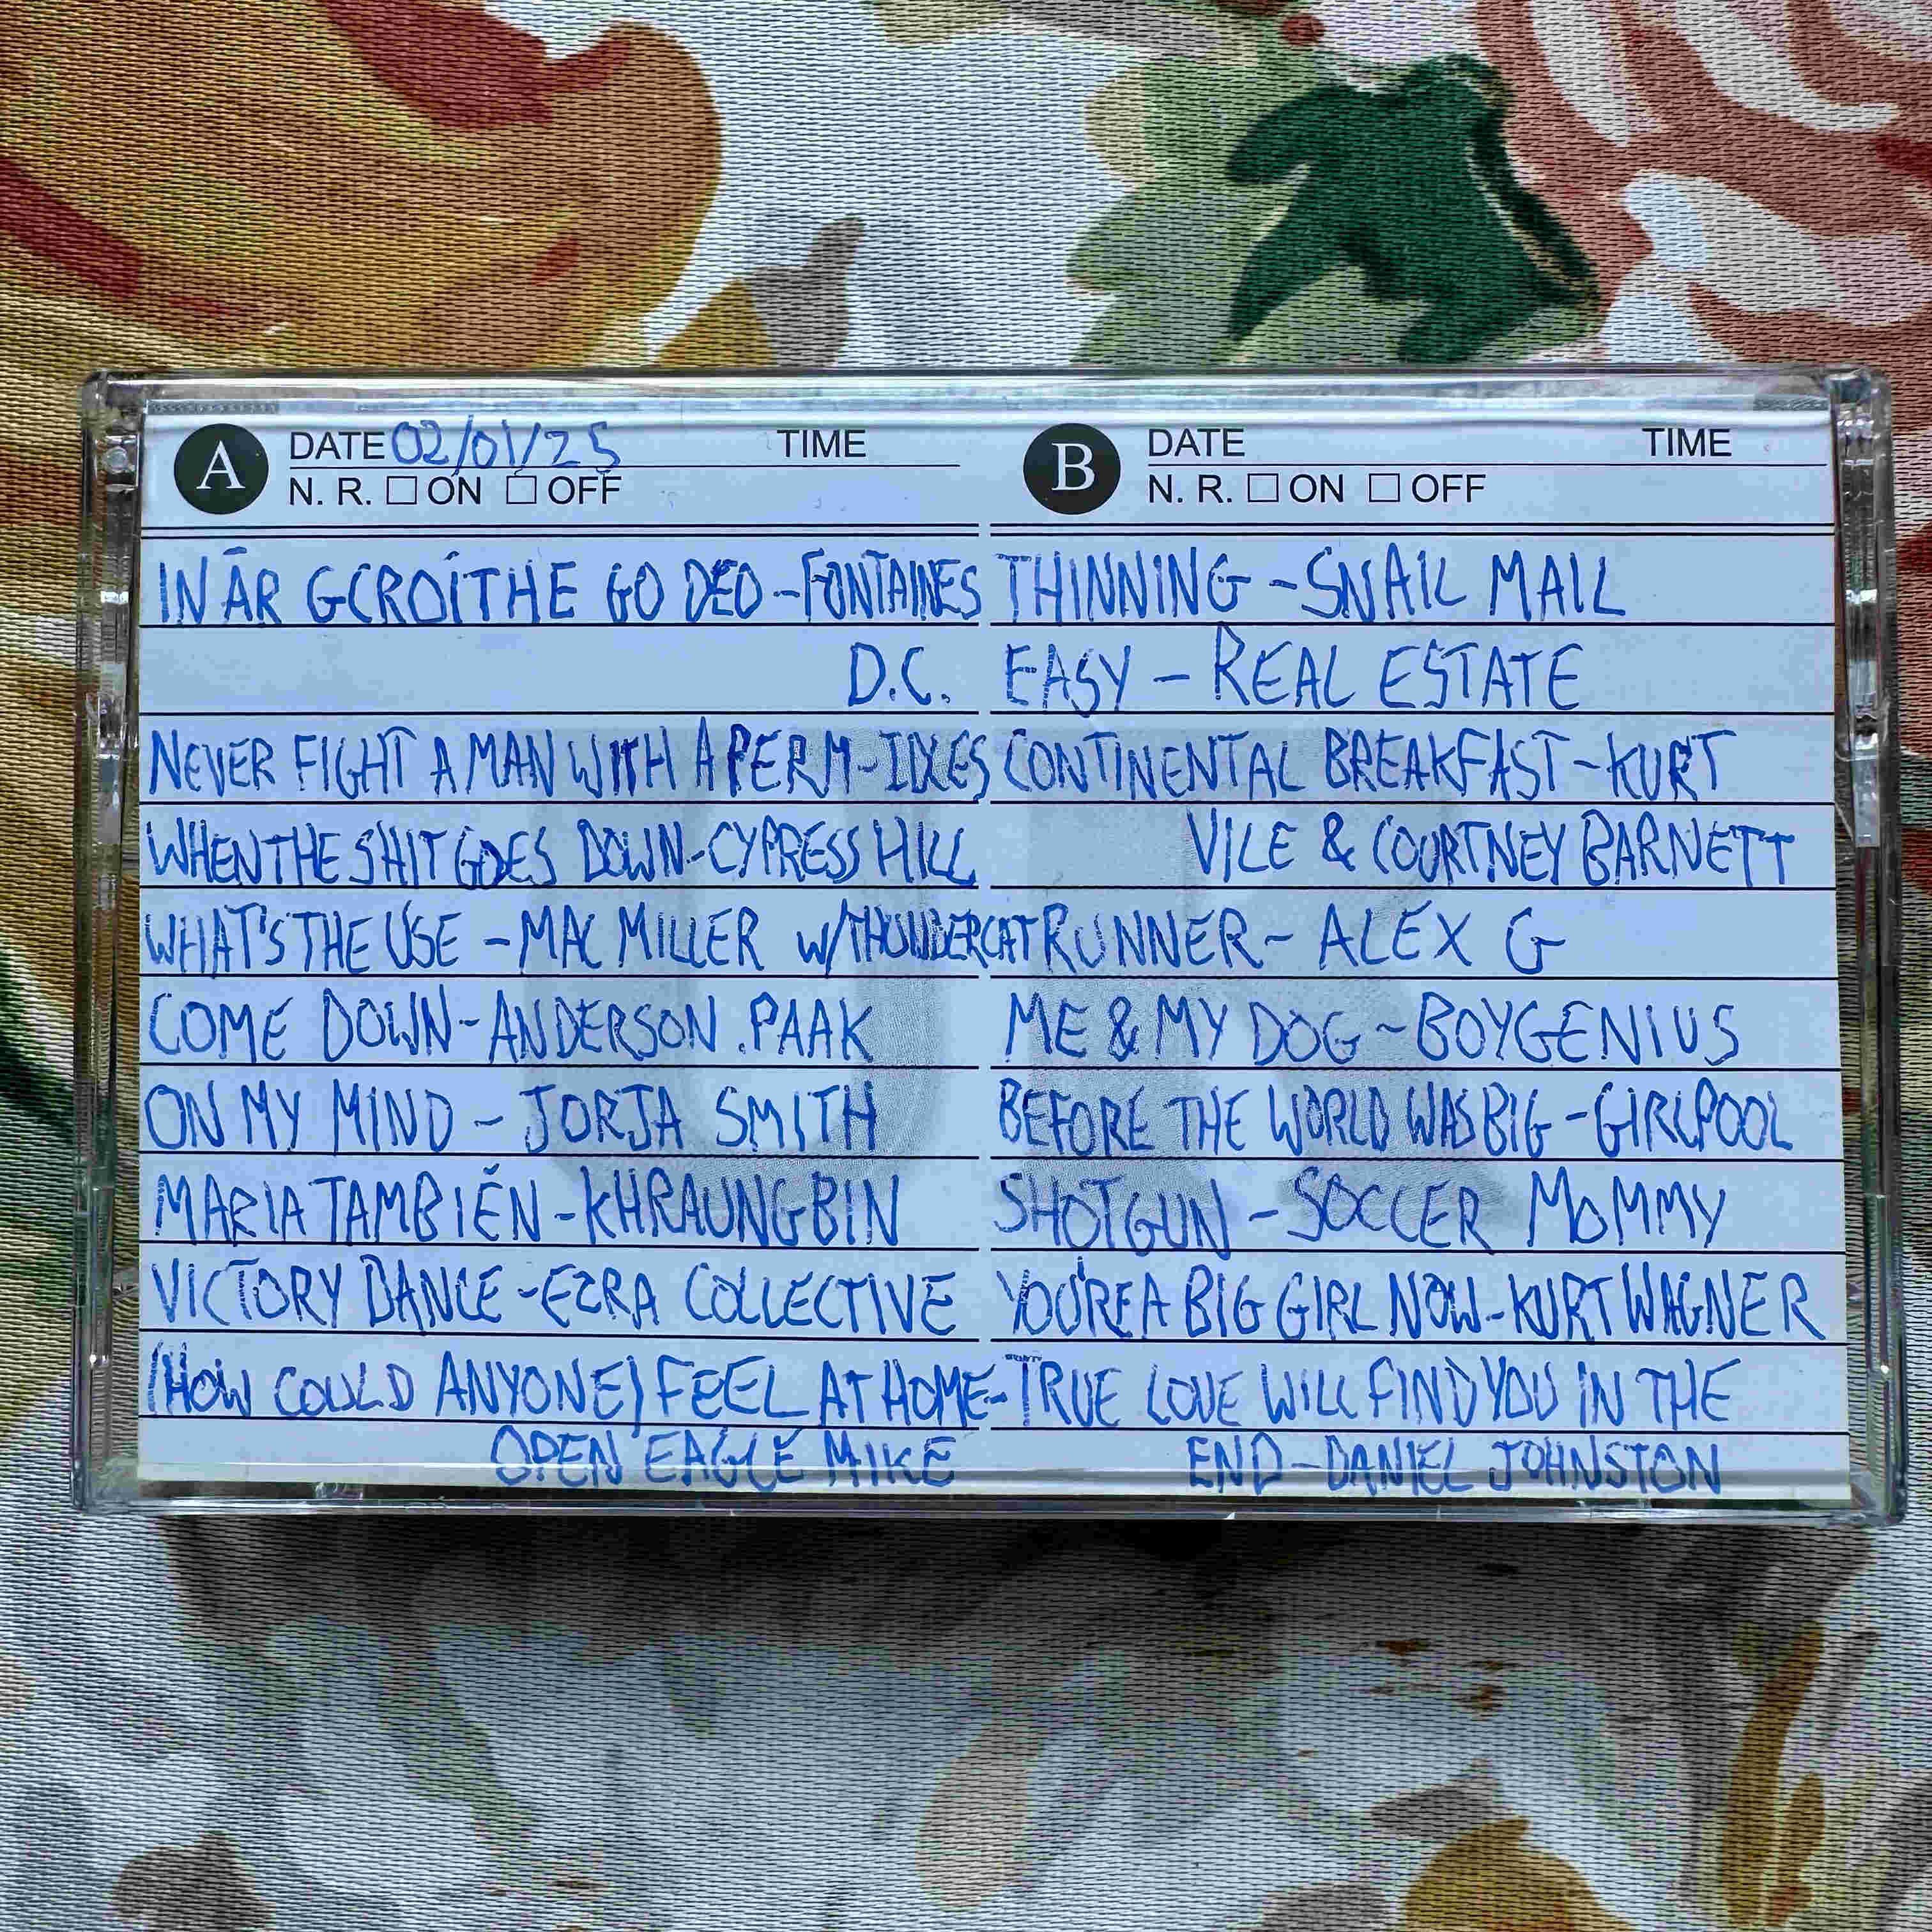 A DATE 02/01/25 TIME
N. R. ☐ ON ☐ OFF
IN ÁR GCROÍTHE GO DEO - FONTAINES
D.C.
NEVER FIGHT A MAN WITH A PERM - IDLES
WHEN THE SHIT GOES DOWN - CYPRESS HILL
WHAT'S THE USE - MAC MILLER W/THUNDERCAT
COME DOWN - ANDERSON .PAAK
ON MY MIND - JORJA SMITH
MARIA TAMBIÉN - KHRAUNGBIN
VICTORY DANCE - EZRA COLLECTIVE
(HOW COULD ANYONE) FEEL AT HOME -
OPEN EAGLE MIKE
B DATE TIME
N. R. ☐ ON ☐ OFF
THINNING - SNAIL MAIL
EASY - REAL ESTATE
CONTINENTAL BREAKFAST - KURT
VILE & COURTNEY BARNETT
RUNNER - ALEX G
ME & MY DOG - BOYGENIUS
BEFORE THE WORLD WAS BIG - GIRLPOOL
SHOTGUN - SOCCER MOMMY
YOU'RE A BIG GIRL NOW - KURT WAGNER
TRUE LOVE WILL FIND YOU IN THE
END - DANIEL JOHNSTON